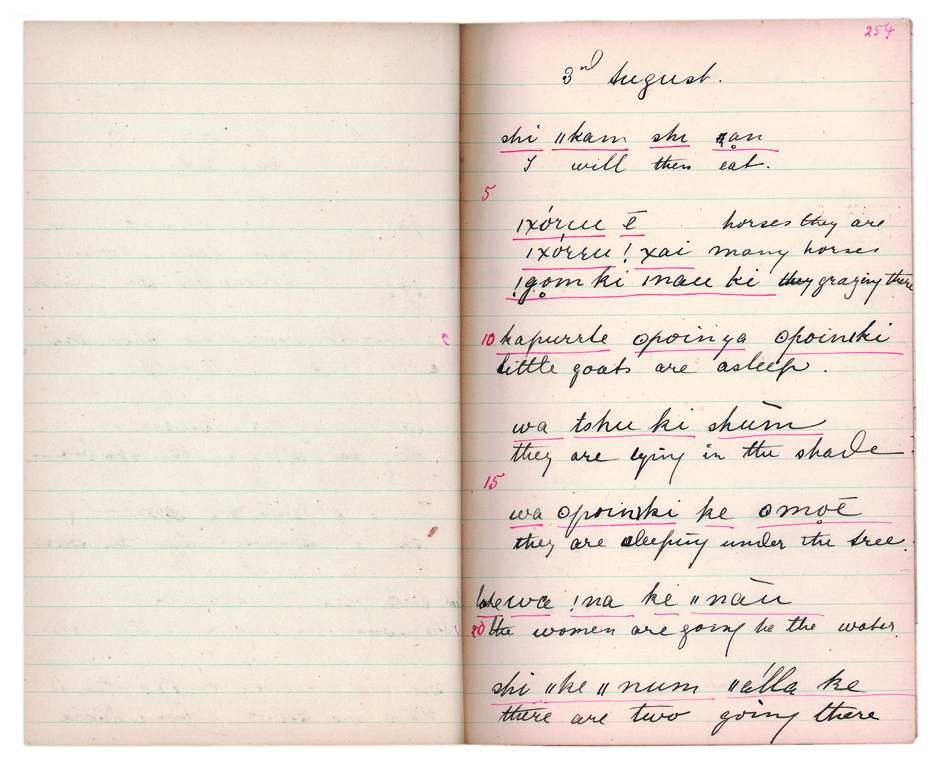 254
3rd August.
shi ‖kam she ʒan
I will then eat.
5
ıxórɛu ē horses they are
ıxórɛu ! xai many horses
!gom ki ınau ki they grazing there
10 kapurrle opoinya opoinki
little goats are asleep.
wa tshu ki shūm
they are lying in the shade
15
wa opoinki ke omoē
they are sleeping under the tree.
wa !na ke ‖nāu
20 the women are going to the water.
shi ‖ke ‖num ‖álla ke
there are two going there